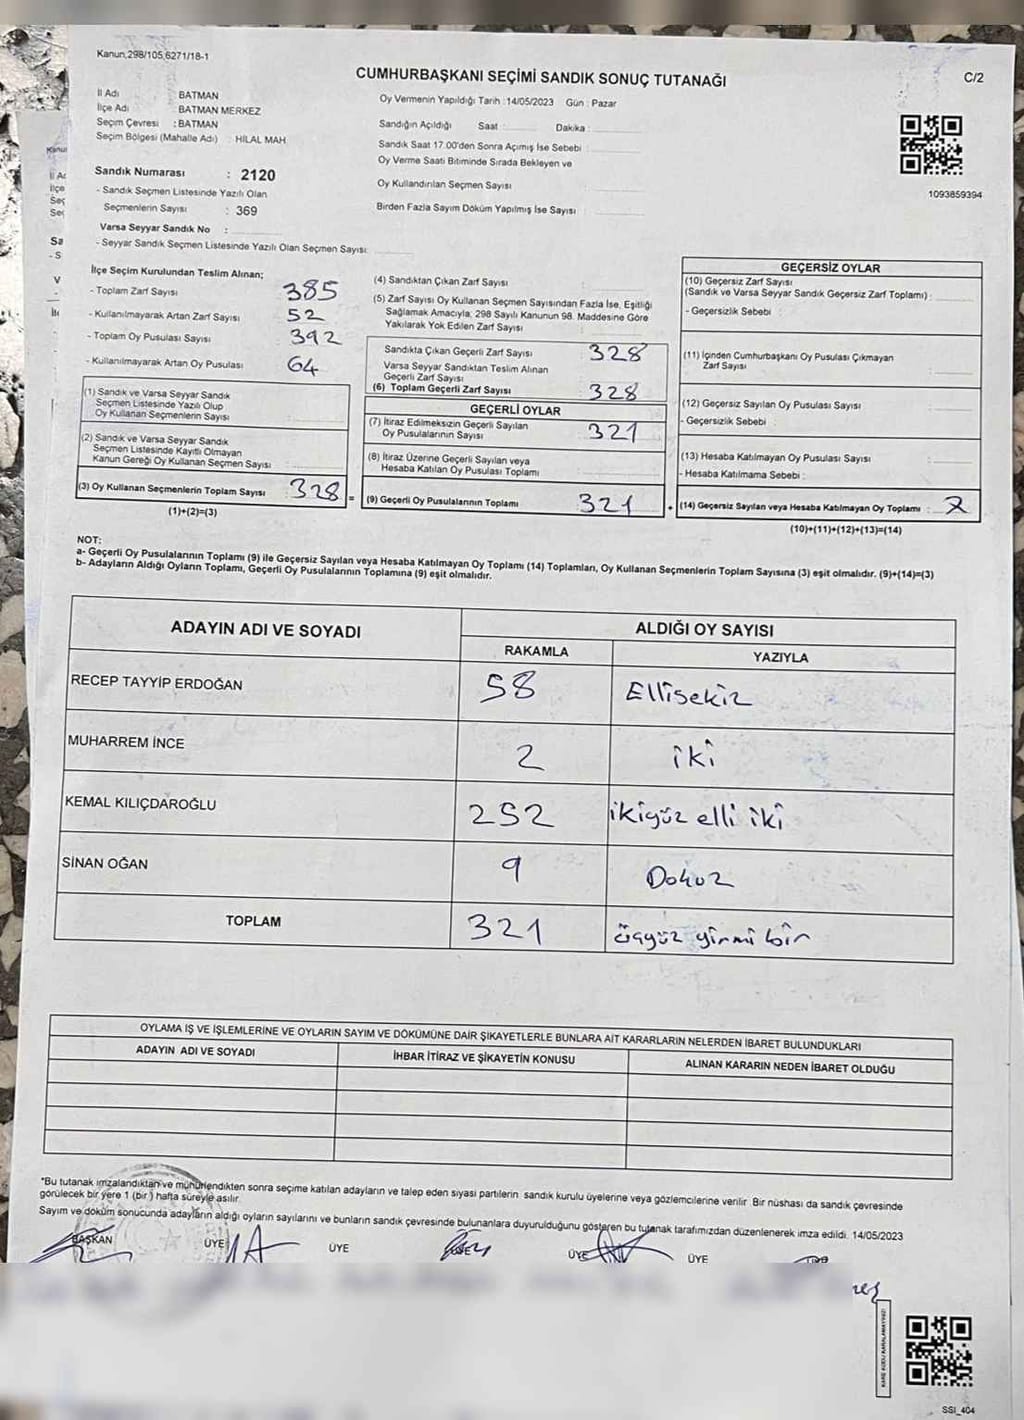 Kanun,298/105,6271/18-1
CUMHURBAŞKANI SEÇİMİ SANDIK SONUÇ TUTANAĞI
C/2
İl Adı : BATMAN
İlçe Adı : BATMAN MERKEZ
Seçim Çevresi : BATMAN
Seçim Bölgesi (Mahalle Adı) : HİLAL MAH
Sandık Numarası : 2120
- Sandık Seçmen Listesinde Yazılı Olan
Seçmenlerin Sayısı : 369
Varsa Seyyar Sandık No :
- Seyyar Sandık Seçmen Listesinde Yazılı Olan Seçmen Sayısı:
Oy Vermenin Yapıldığı Tarih :14/05/2023 Gün : Pazar
Sandığın Açıldığı Saat : Dakika :
Sandık Saat 17.00'den Sonra Açımış İse Sebebi :
Oy Verme Saati Bitiminde Sırada Bekleyen ve
Oy Kullandırılan Seçmen Sayısı
Birden Fazla Sayım Döküm Yapılmış İse Sayısı
1093859394
İlçe Seçim Kurulundan Teslim Alınan;
- Toplam Zarf Sayısı 385
- Kullanılmayarak Artan Zarf Sayısı 52
- Toplam Oy Pusulası Sayısı 392
- Kullanılmayarak Artan Oy Pusulası 64
(1) Sandık ve Varsa Seyyar Sandık
Seçmen Listesinde Yazılı Olup
Oy Kullanan Seçmenlerin Sayısı
(2) Sandık ve Varsa Seyyar Sandık
Seçmen Listesinde Kayıtlı Olmayan
Kanun Gereği Oy Kullanan Seçmen Sayısı
(3) Oy Kullanan Seçmenlerin Toplam Sayısı 328 =
(1)+(2)=(3)
(4) Sandıktan Çıkan Zarf Sayısı
(5) Zarf Sayısı Oy Kullanan Seçmen Sayısından Fazla İse, Eşitliği
Sağlamak Amacıyla; 298 Sayılı Kanunun 98. Maddesine Göre
Yakılarak Yok Edilen Zarf Sayısı
Sandıkta Çıkan Geçerli Zarf Sayısı 328
Varsa Seyyar Sandıktan Teslim Alınan
Geçerli Zarf Sayısı
(6) Toplam Geçerli Zarf Sayısı 328
GEÇERLİ OYLAR
(7) İtiraz Edilmeksizin Geçerli Sayılan
Oy Pusulalarının Sayısı 321
(8) İtiraz Üzerine Geçerli Sayılan veya
Hesaba Katılan Oy Pusulası Toplamı
(9) Geçerli Oy Pusulalarının Toplamı 321 +
GEÇERSİZ OYLAR
(10) Geçersiz Zarf Sayısı
(Sandık ve Varsa Seyyar Sandık Geçersiz Zarf Toplamı) :
- Geçersizlik Sebebi :
(11) İçinden Cumhurbaşkanı Oy Pusulası Çıkmayan
Zarf Sayısı :
(12) Geçersiz Sayılan Oy Pusulası Sayısı
- Geçersizlik Sebebi :
(13) Hesaba Katılmayan Oy Pusulası Sayısı
- Hesaba Katılmama Sebebi :
(14) Geçersiz Sayılan veya Hesaba Katılmayan Oy Toplamı : 7
(10)+(11)+(12)+(13)=(14)
NOT:
a- Geçerli Oy Pusulalarının Toplamı (9) ile Geçersiz Sayılan veya Hesaba Katılmayan Oy Toplamı (14) Toplamları, Oy Kullanan Seçmenlerin Toplam Sayısına (3) eşit olmalıdır. (9)+(14)=(3)
b- Adayların Aldığı Oyların Toplamı, Geçerli Oy Pusulalarının Toplamına (9) eşit olmalıdır.
ADAYIN ADI VE SOYADI ALDIĞI OY SAYISI
RAKAMLA YAZIYLA
RECEP TAYYİP ERDOĞAN 58 Ellisekiz
MUHARREM İNCE 2 iki
KEMAL KILIÇDAROĞLU 252 ikiyüz elli iki
SİNAN OĞAN 9 Dokuz
TOPLAM 321 üçyüz yirmi bir
OYLAMA İŞ VE İŞLEMLERİNE VE OYLARIN SAYIM VE DÖKÜMÜNE DAİR ŞİKAYETLERLE BUNLARA AİT KARARLARIN NELERDEN İBARET BULUNDUKLARI
ADAYIN ADI VE SOYADI İHBAR İTİRAZ VE ŞİKAYETİN KONUSU ALINAN KARARIN NEDEN İBARET OLDUĞU
*Bu tutanak imzalandıktan ve mühürlendikten sonra seçime katılan adayların ve talep eden siyasi partilerin sandık kurulu üyelerine veya gözlemcilerine verilir. Bir nüshası da sandık çevresinde
görülecek bir yere 1 (bir) hafta süreyle asılır.
Sayım ve döküm sonucunda adayların aldığı oyların sayılarını ve bunların sandık çevresinde bulunanlara duyurulduğunu gösteren bu tutanak tarafımızdan düzenlenerek imza edildi. 14/05/2023
BAŞKAN ÜYE ÜYE ÜYE ÜYE
SSI_404